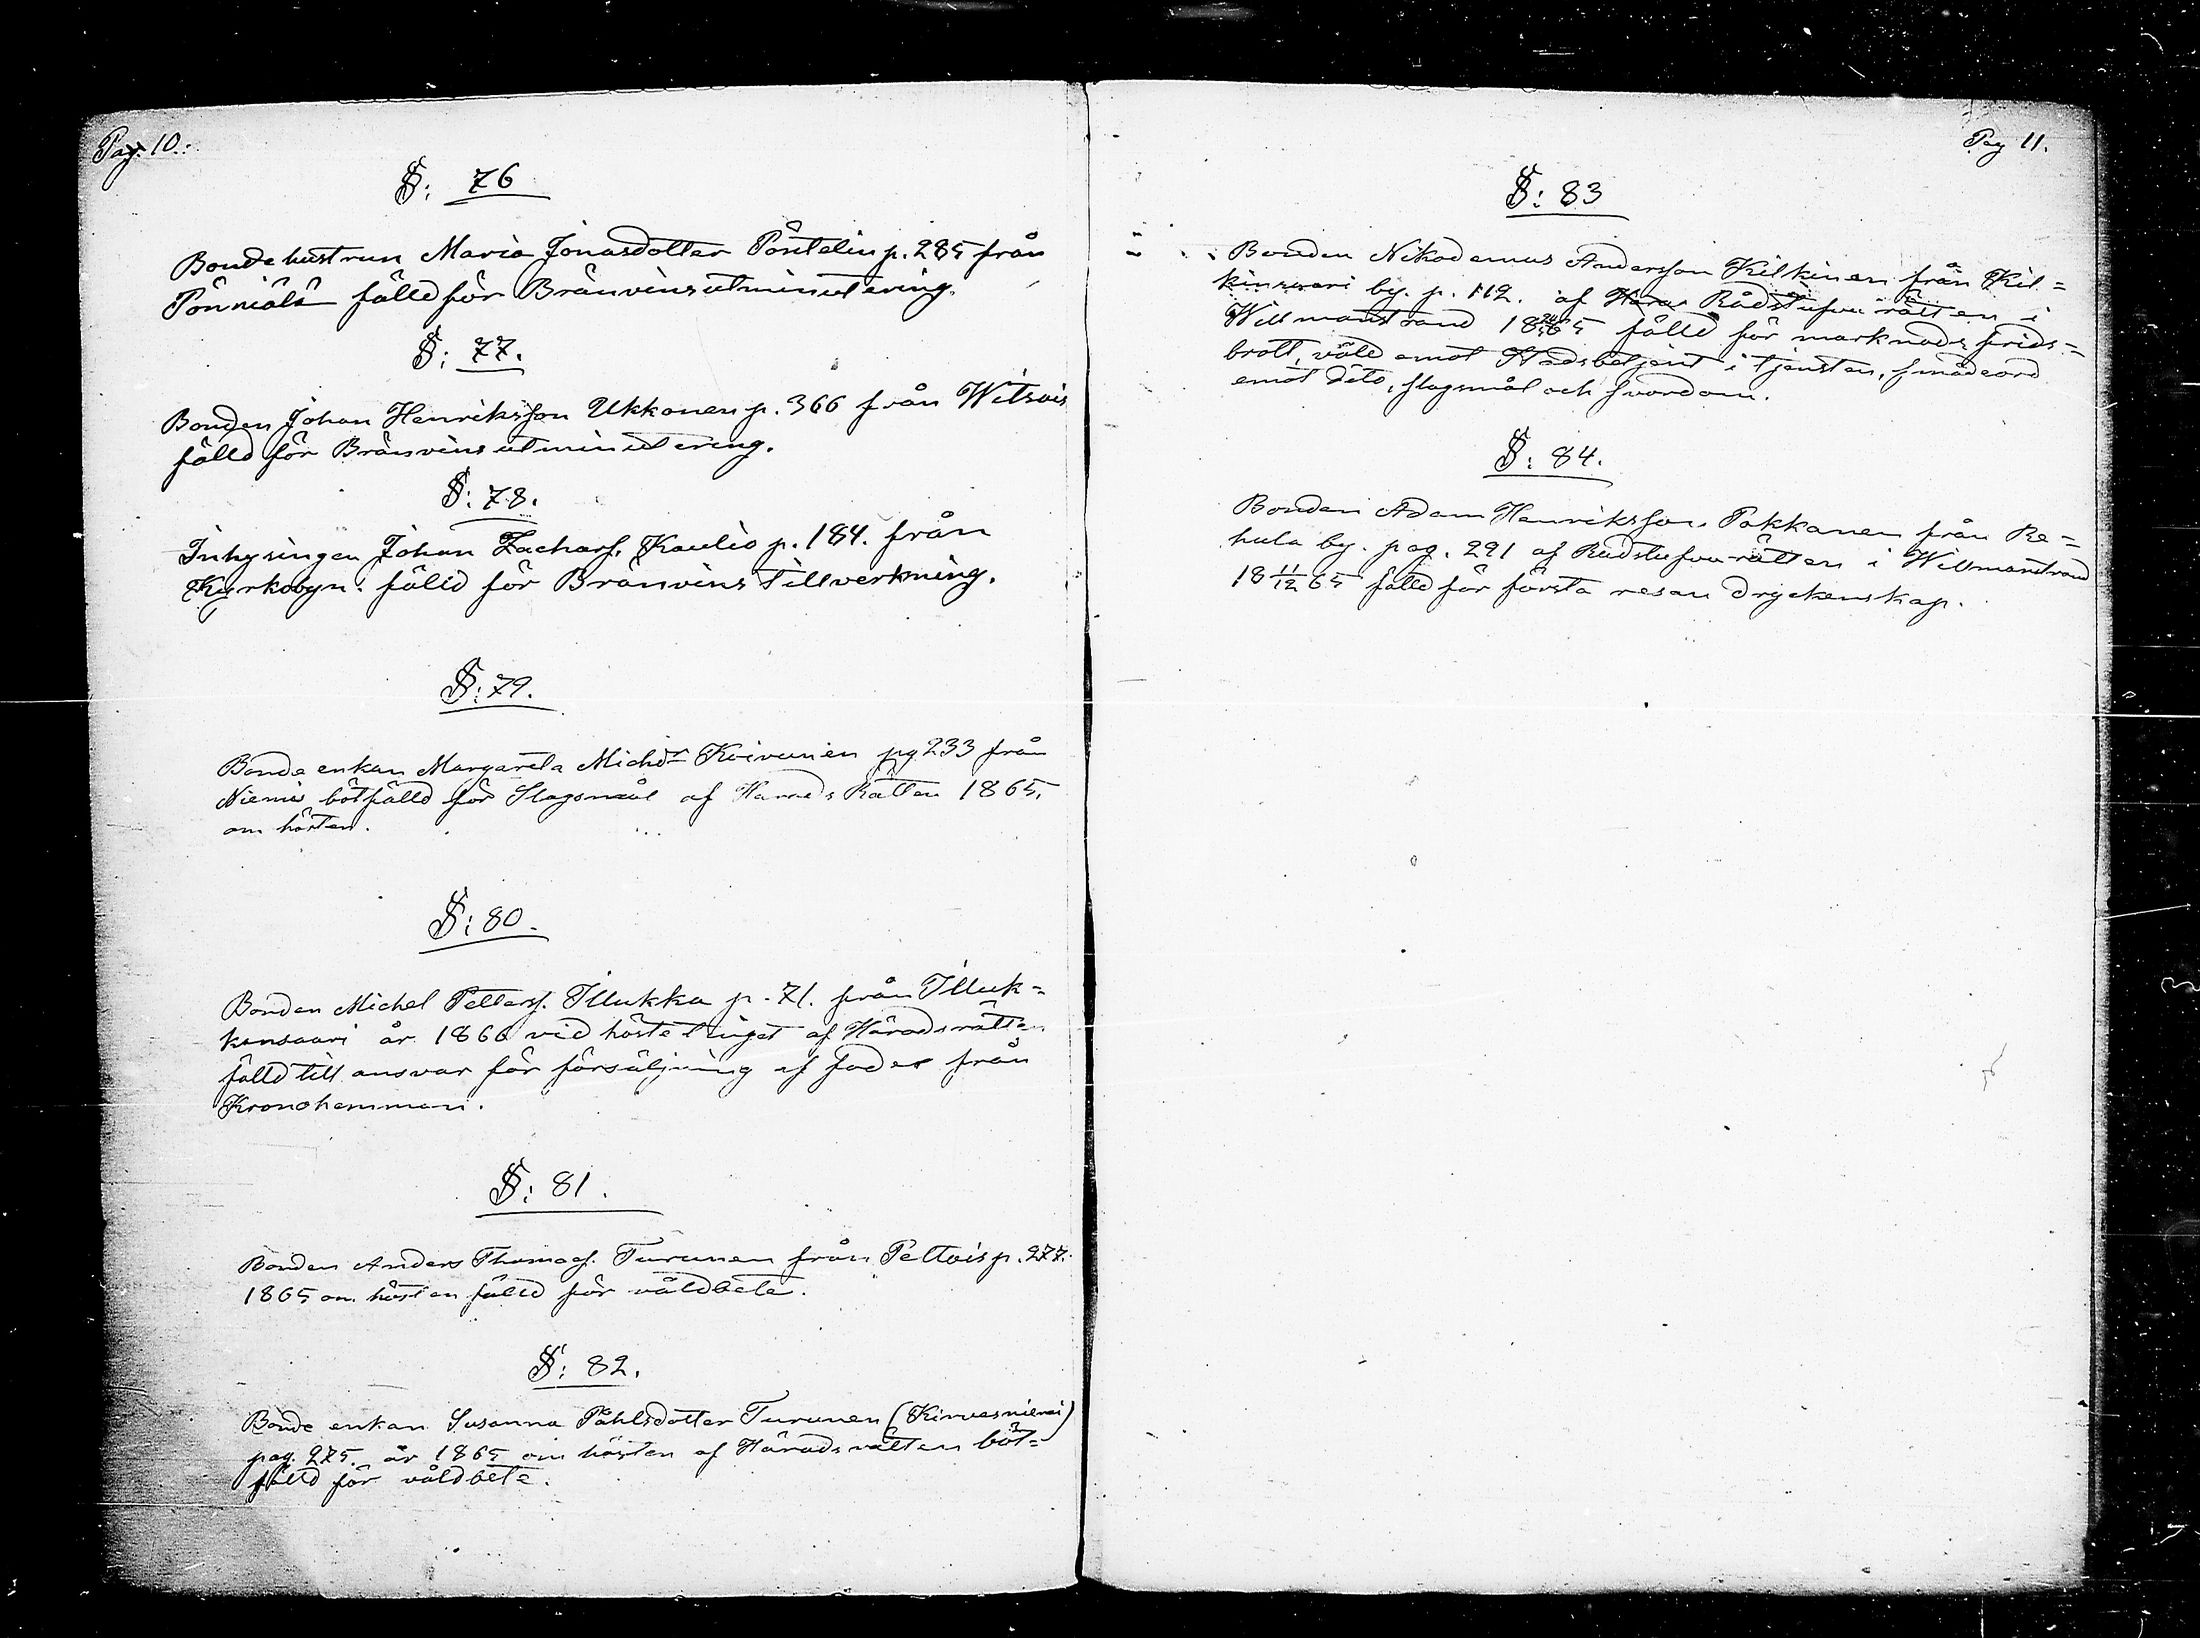 Pag. 10.
§: 76
Bondehustrun Maria Jonasdotter Pöntelin p. 285 från
Pönniälä fälld för Bränvinsutminutering.
§: 77.
Bonden Johan Henriksson Ukkonen p. 366 från Witsois
fälld för Bränvinsutminutering.
§: 78.
Inhysingen Johan Zachars. Kaulio p. 184. från
Kyrkobyn. fälld för Bränvins tillverkning.
§: 79.
Bonde enkan Margareta Michdr Koivunen pg 233 från
Niemis bötfälld för Slagsmål af Härads Rätten 1865.
om hösten.
§: 80.
Bonden Michel Petters. Illukka p. 71. från Illuk=
kansaari år 1866 vid hösteting​et af Häradsrätten
fälld till ansvar för försäljning af foder från
Kronohemman.
§: 81.
Bonden Anders Thomas. Turunen från Peltois p. 277.
1865 om hösten fälld för våldbete.
§: 82.
Bonde enkan Susanna Påhlsdotter Turunen (Kirvesniemi)
pag. 275. år 1865 om hösten af Häradsrätten böt=
fälld för våldbete.
Pag 11.
§: 83
Bonden Nikodemus Andersson Kilkinen från Kil=
kinsaari by. p. 112. af Rådstufvu rätten i
Willmanstrand 1865 fälld för marknads frids=
brott, våld emot Stadsbetjent i tjensten, smädeord
emot dito, slagsmål och svordom.
§: 84.
Bonden Adam Henriksson Pakkanen från Re=
hula by. pag. 291 af Rådstufvurätten i Willmanstrand
18 11/12 65 fälld för första resan dryckenskap.